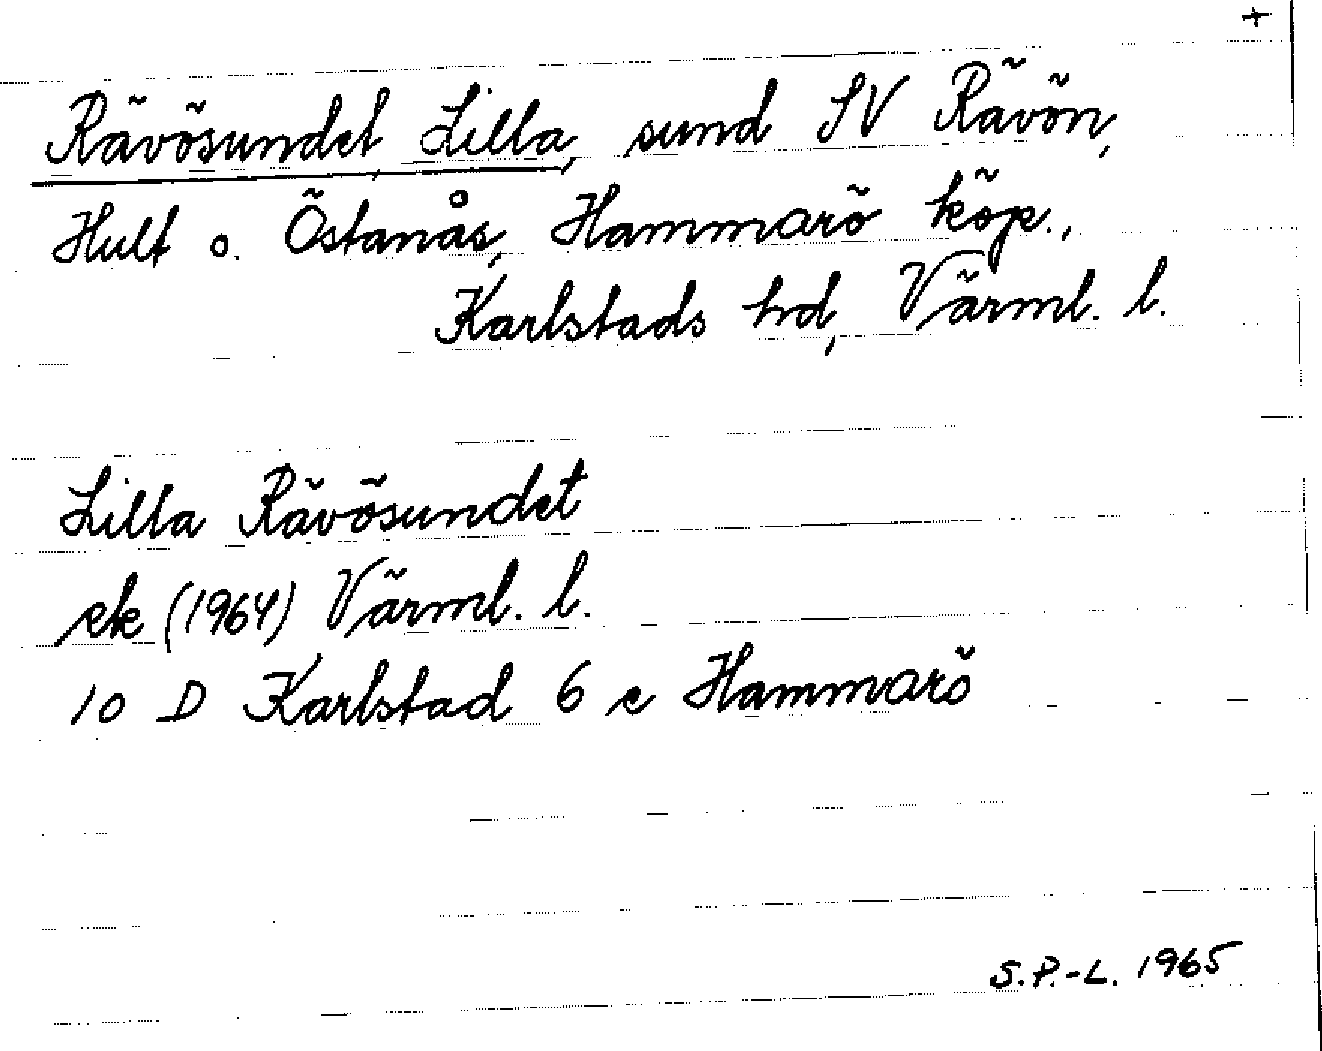 +
Rävösundet, Lilla, sund SV Rävön,
Hult o. Östanås, Hammarö köp.,
Karlstads hd, Värml. l.
Lilla Rävösundet
ek (1964) Värml. l.
10 D Karlstad 6 c Hammarö
S.P.-L. 1965